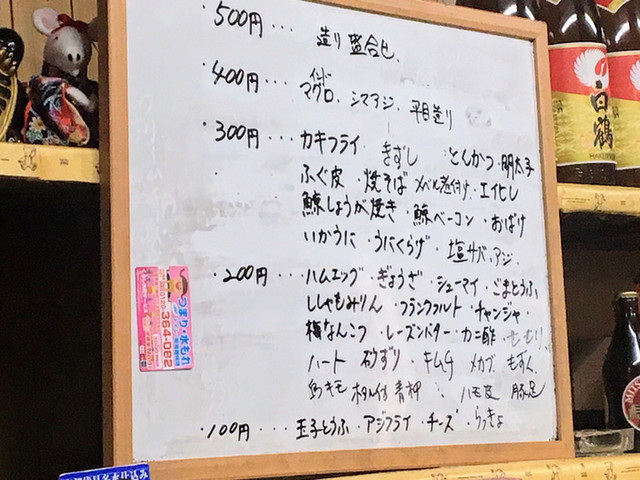 ・500円・・・ 造り盛合せ、
・400円・・・ インド マグロ、シマアジ、平目造り
・300円・・・ カキフライ きずし とんかつ・明太子
ふぐ皮・焼そば メバル煮付け・エイヒレ
鯨しょうが焼き・鯨ベーコン・おばけ
いかうに・うにくらげ・塩サバ・アジ・
・200円・・・ ハムエッグ・ぎょうざ・シューマイ・ごまとうふ
ししゃもみりん・フランクフルト・チャンジャ・
梅なんこつ・レーズンバター・カニ酢・
ハート 砂ずり・キムチ メカブ・もずく
キモ 青柳・ハモ皮 豚足
・100円・・・ 玉子とうふ・アジフライ・チーズ・らっきょ
つまり・水もれ
364-082
白鶴